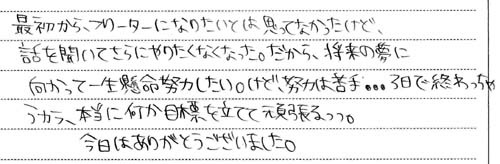 最初から、フリーターになりたいとは思ってなかったけど、
話を聞いてさらにやりたくなくなった。だから、将来の夢に
向かって一生懸命努力したい。けど、努力は苦手…3日で終わっちゃ
うカラ、本当に何か目標を立てて頑張るっっ。
今日はありがとうございました。